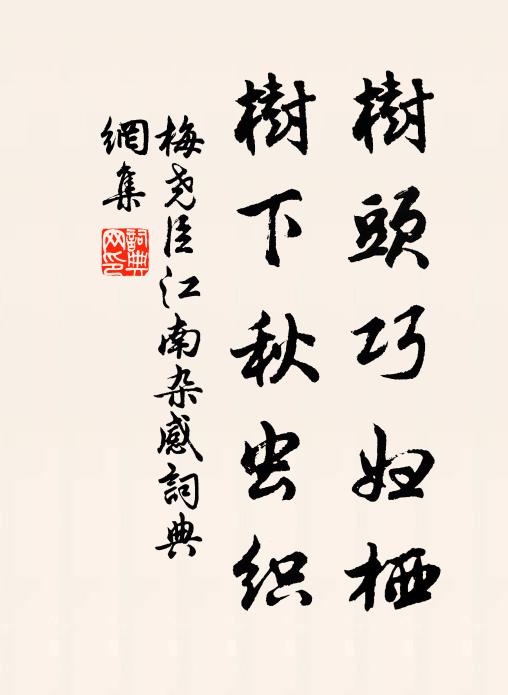 樹頭巧妇栖
樹下秋虫织
梅尧臣江南杂感詞典
網集
詞典网印